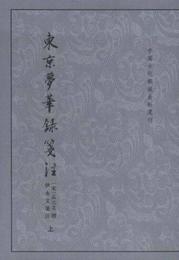 中國古代都城資料選刊
東京夢華錄箋注
[宋]孟元老 撰
伊永文 箋注
上